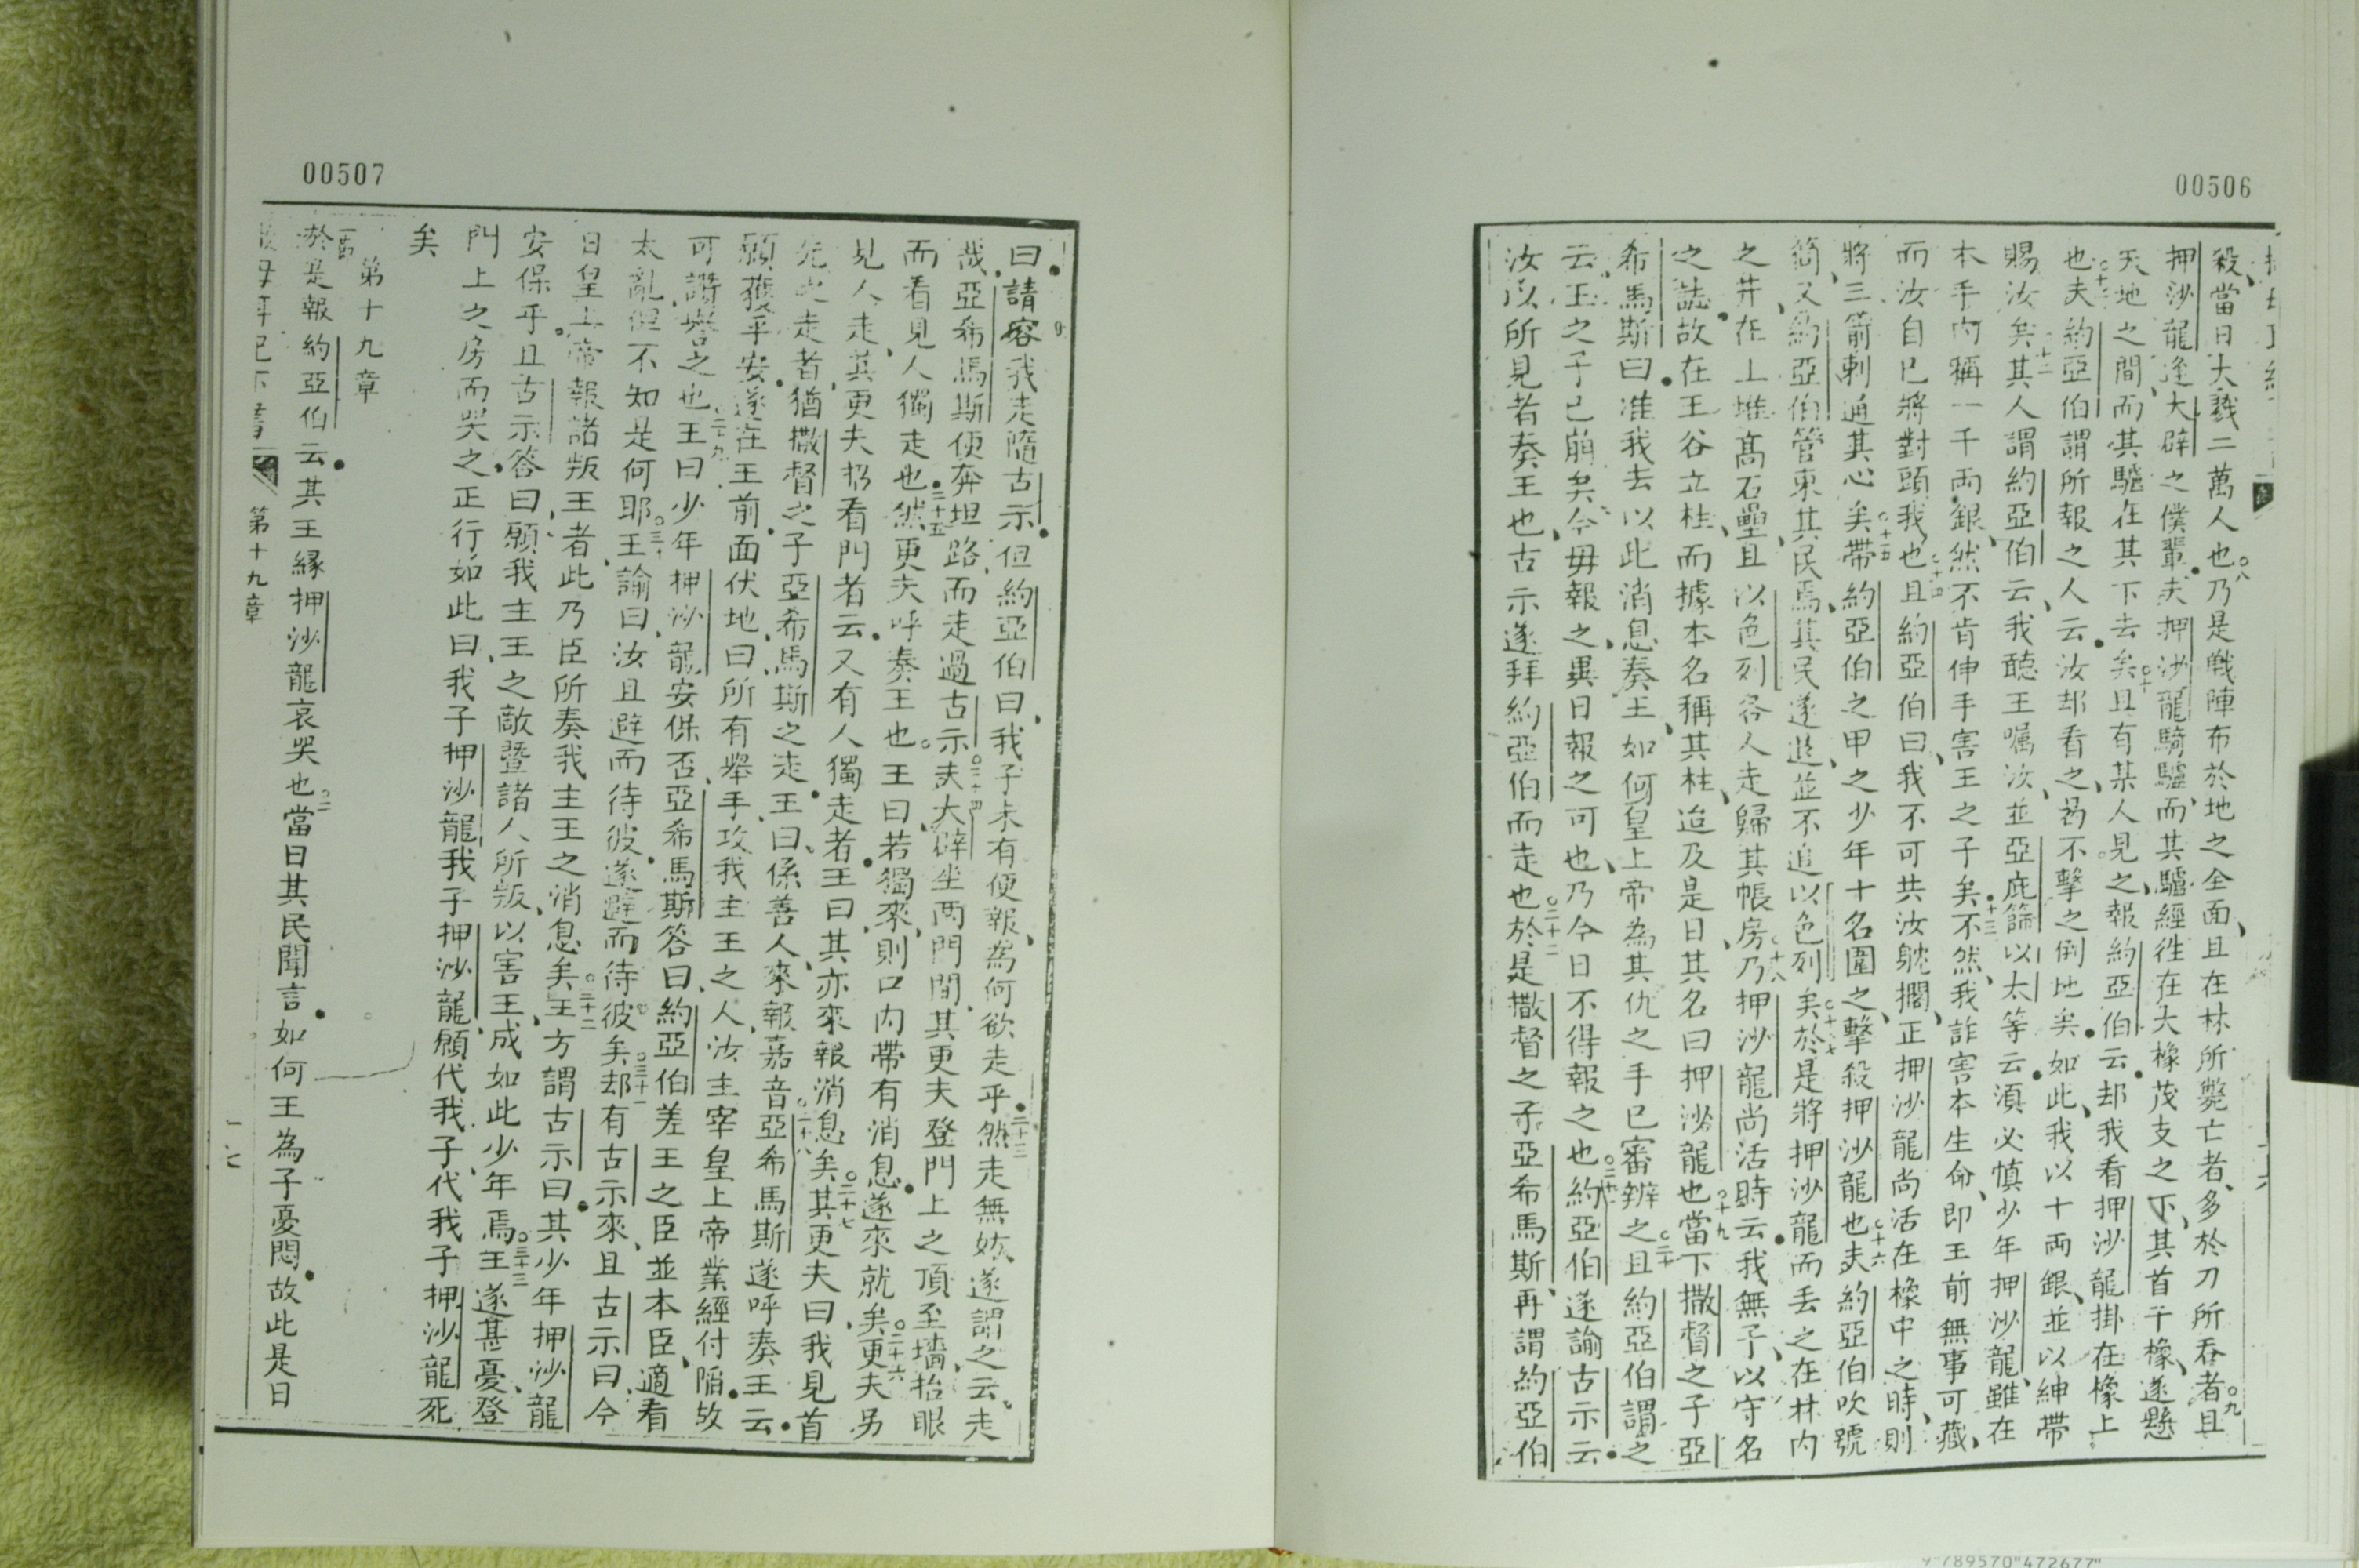 00506
殺、當日大戮二萬人也○八乃是戰陣布於地之全面、且在林所斃亡者、多於刀所吞者○九且
押沙龍逢大辟之僕輩夫押沙龍騎驢、而其驢經徃在大橡茂支之下、其首干橡、遂懸
天地之間、而其驢在其下去矣○十且有某人見之、報約亞伯云、却我看押沙龍掛在橡上
也○十一夫約亞伯謂所報之人云、汝却看之、曷不擊之倒地矣、如此、我以十両銀、並以紳帶
賜汝矣○十二其人謂約亞伯云、我聽王囑汝、並亞庇篩以太等云、湏必慎少年押沙龍、雖在
本手內稱一千両銀、然不肯伸手害王之子矣○十三不然、我詐害本生命、即王前無事可藏、
而汝自已將對頭我也○十四且約亞伯曰、我不可共汝躭擱、正押沙龍尚活在橡中之時、則
將三箭刺通其心矣○十五帶約亞伯之甲之少年十名圍之、擊殺押沙龍也○十六夫約亞伯吹號
筒、又約亞伯管束其民焉、其民遂遊並不追以色列矣○十七於是將押沙龍而丟之在林內
之井在上堆髙石壘、且以色列各人走歸其帳房○十八乃押沙龍尚活時云、我無子、以守名
之誌、故在王谷立柱、而據本名稱其柱、迨及是日、其名曰押沙龍也○十九當下撒督之子亞
希馬斯曰、准我去以此消息奏王、如何皇上帝為其仇之手已審辨之○二十且約亞伯謂之
云、王之子已崩矣、今毋報之、異日報之可也、乃今日不得報之也○二十一約亞伯遂諭古示云、
汝以所見者奏王也、古示遂拜約亞伯而走也○二十二於是撒督之子亞希馬斯、再謂約亞伯
00507
曰、請容我走隨古示、但約亞伯曰、我子未有便報、為何欲走乎○二十三然走無妨、遂謂之云、走
哉、亞希馬斯便奔坦路、而走過古示○二十四夫大辟坐両門間、其更夫登門上之頂至墻、抬眼
而看見人獨走也○二十五然更夫呼奏王也、王曰、若獨來、則口內帶有消息、遂來就矣○二十六更夫另
見人走、其更夫招看門者云、又有人獨走者、王曰、其亦來報消息矣○二十七其更夫曰、我見首
先之走者、猶撒督之子亞希馬斯之走、王曰、係善人、來報嘉音○二十八亞希馬斯遂呼奏王云、
願獲平安、遂在王前、面伏地、曰、所有舉手攻我主王之人、汝主宰皇上帝業經付陷、致
可讚譽之也○二十九王曰、少年押沙龍安保否、亞希馬斯答曰、約亞伯差王之臣並本臣、適看
太亂、但不知是何耶○三十王諭曰、汝且避而待彼、遂避而待彼矣○三十一却有古示來、且古示曰、今
日皇上帝報諸叛王者、此乃臣所奏我主王之消息矣○三十二王方謂古示曰、其少年押沙龍
安保乎、且古示答曰、願我主王之敵暨諸人所叛以害王、成如此少年焉○三十三王遂甚憂、登
門上之房而哭之、正行如此曰、我子押沙龍、我子押沙龍、願代我子、代我子押沙龍死
矣
第十九章
於是報約亞伯云、其王緣押沙龍哀哭也○二當日其民聞言、如何王為子憂悶、故此是日
第十九章
9"789570"472677"